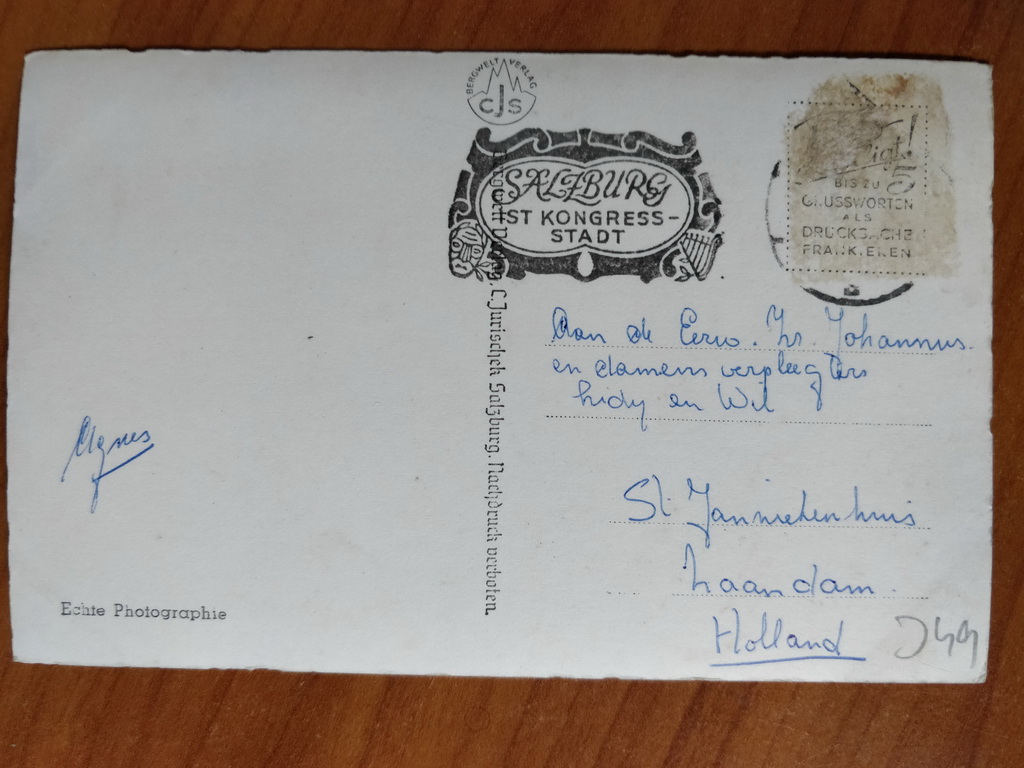 BERGWELT VERLAG
CJS
SALZBURG
IST KONGRESS-
STADT
BIS ZU 5
GRUSSWORTEN
ALS
DRUCKSACHE
FRANKIEREN
Bergwelt Verlag. C. Jurischek Salzburg. Nachdruck verboten.
Aan de Eerw. Zr. Johannus.
en damens verpleegters
Lidy en Wil
St. Jansziekenhuis
Zaandam.
Holland
Agnes
Echte Photographie